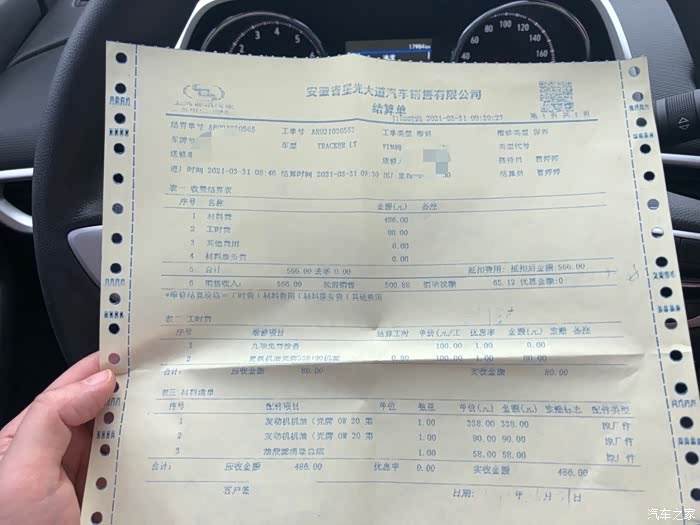 17984km
安徽省星光大道汽车销售有限公司
结算单
打印时间 2021-03-31 09:19:27 第 1 页 共 1 页
结算单号 工单号 AR021030557 工单类型 维修 维修类型 保养
车牌号 车型 TRACKER LT VIN码 车型代号
送修 送修 接待员
进厂时间 2021-03-31 08:46 结算时间 2021-03-31 09:30 出厂里程 结算员
表一 收费结算表
序号 名称 金额(元) 备注
1 材料费 486.00
2 工时费 80.00
3 其他费用 0.00
4 材料服务费 0.00
5 合计 566.00 去零 0.00 抵扣费用: 抵扣后金额:566.00
6 销售收入: 566.00 税的销售 500.88 销项税额 65.12 优惠金额:0
*维修结算价格=工时费|材料费用|材料服务费|其他费用
表二 工时费
序号 维修项目 结算工时 单价(元/工 优惠率 金额(元) 索赔 备注
1 九项免费检查 100.00 1.00 0.00
2 0.80 100.00 1.00 80.00
合计: 应收金额 80.00 实收金额 80.00
表三 材料清单
序号 配件项目 单位 数量 单价(元) 金额(元) 索赔标志 配件类型
1 发动机机油(壳牌 0W 20 第 1.00 338.00 338.00 原厂件
2 发动机机油(壳牌 0W 20 第 1.00 90.00 90.00 原厂件
3 机油滤清器总成 1.00 58.00 58.00 原厂件
合计: 应收金额 486.00 优惠率 0.00 实收金额 486.00
客户签 日期:
汽车之家